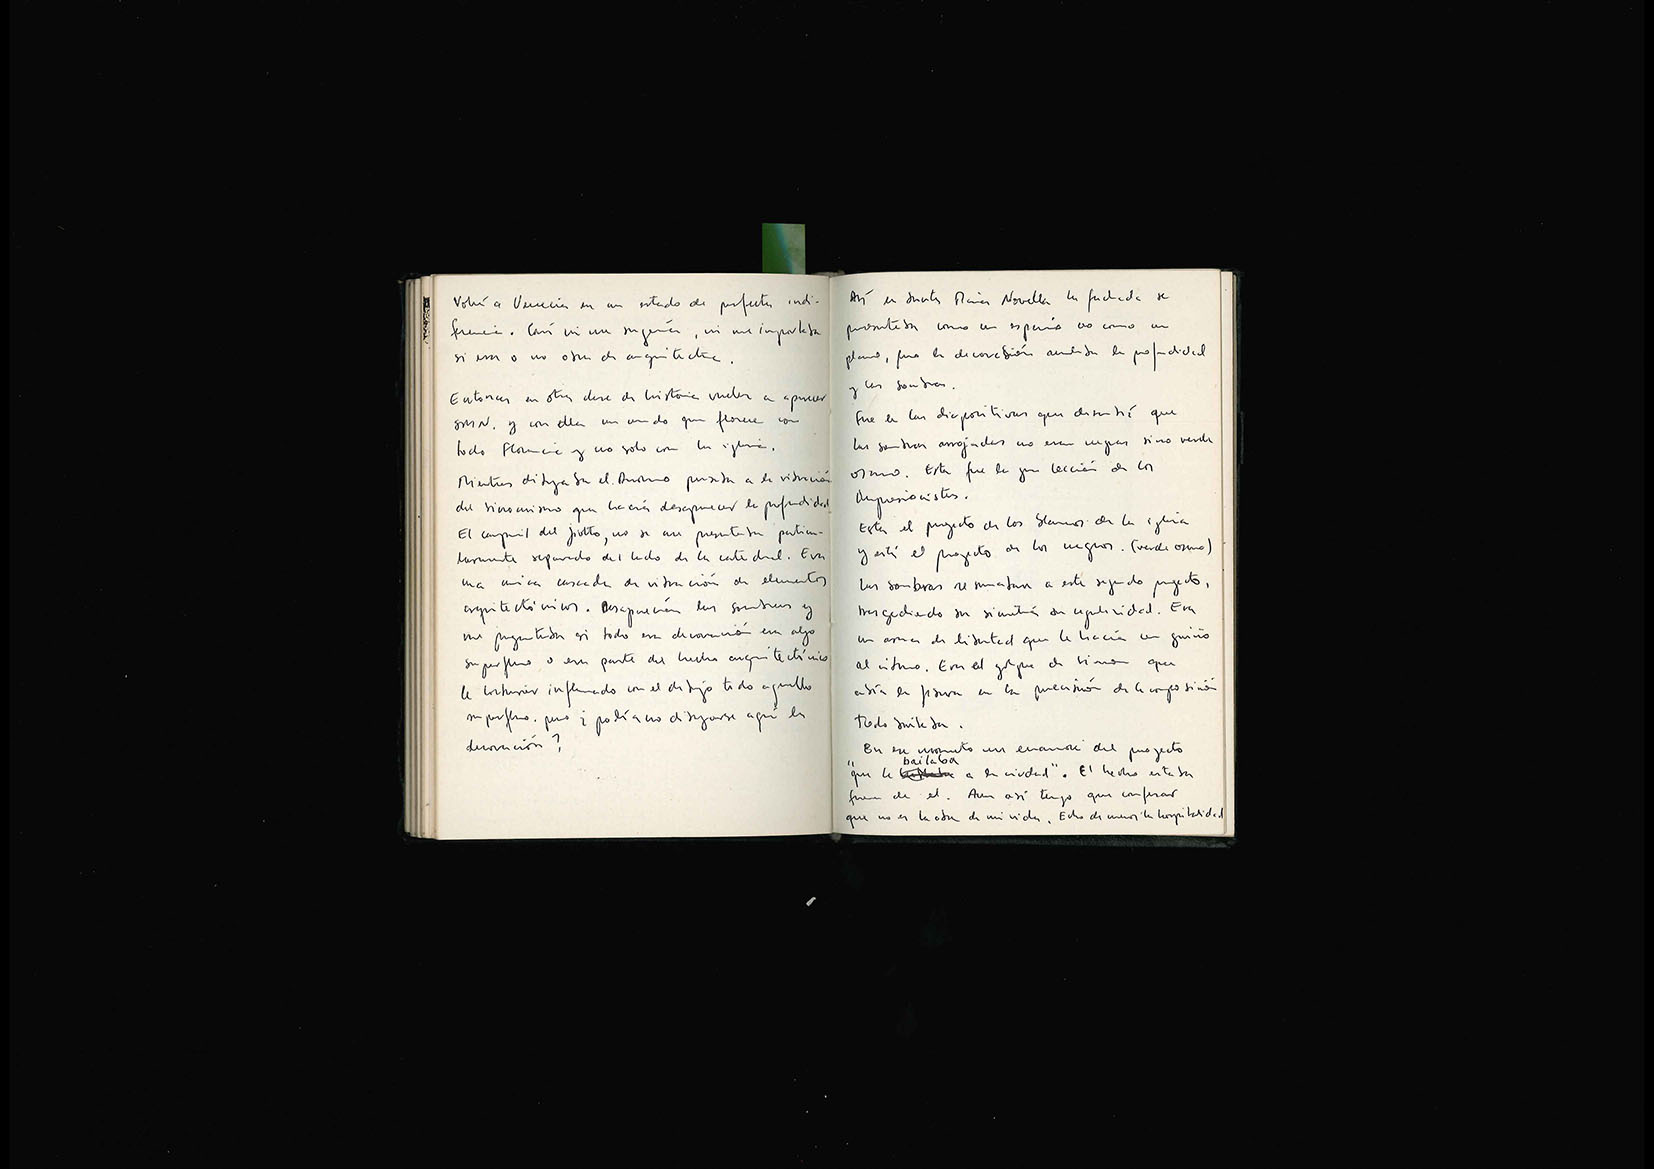 Volví a Venecia en un estado de perfecta indi-
ferencia. Casi ni me sugería, ni me importaba
si era o no obra de arquitectura.
Entonces en otra clase de historia vuelve a aparecer
SMN. y con ella un mundo que florece con
todo Florencia y no solo con la iglesia.
Mientras dibujaba el Duomo pensaba a la vibración
del sincronismo que hacía desaparecer la profundidad
El campanil del Giotto, no se me presentaba particu-
larmente separado del lado de la catedral. Era
una única cascada de vibración de elementos
arquitectónicos. Desaparecían las sombras y
me preguntaba si todo esa decoración era algo
superfluo o era parte del hecho arquitectónico
Le Corbusier inflamado con el dibujo todo aquello
superfluo. pero ¿ podía no dibujarse aquí la
decoración?
Así en Santa Maria Novella la fachada se
presentaba como un espacio no como un
plano, pero la decoración anulaba la profundidad
y las sombras.
Fue en las diapositivas que descubrí que
las sombras arrojadas no eran negras sino verde
oscuro. Esta fue la gran lección de los
Impresionistas.
Está el proyecto de los blancos de la iglesia
y está el proyecto de los negros. (verde oscuro)
Las sombras se sumaban a este segundo proyecto,
trasgrediendo su simetría su regularidad. Era
un arma de libertad que le hacía un guiño
al ritmo. Era el golpe de timón que
abría la fisura en la precisión de la composición
Todo bailaba.
En ese momento me enamoré del proyecto
bailaba
"que le a la ciudad". El hecho estaba
fuera de el. Aun así tengo que confesar
que no es la obra de mi vida. Echo de menos la hospitalidad